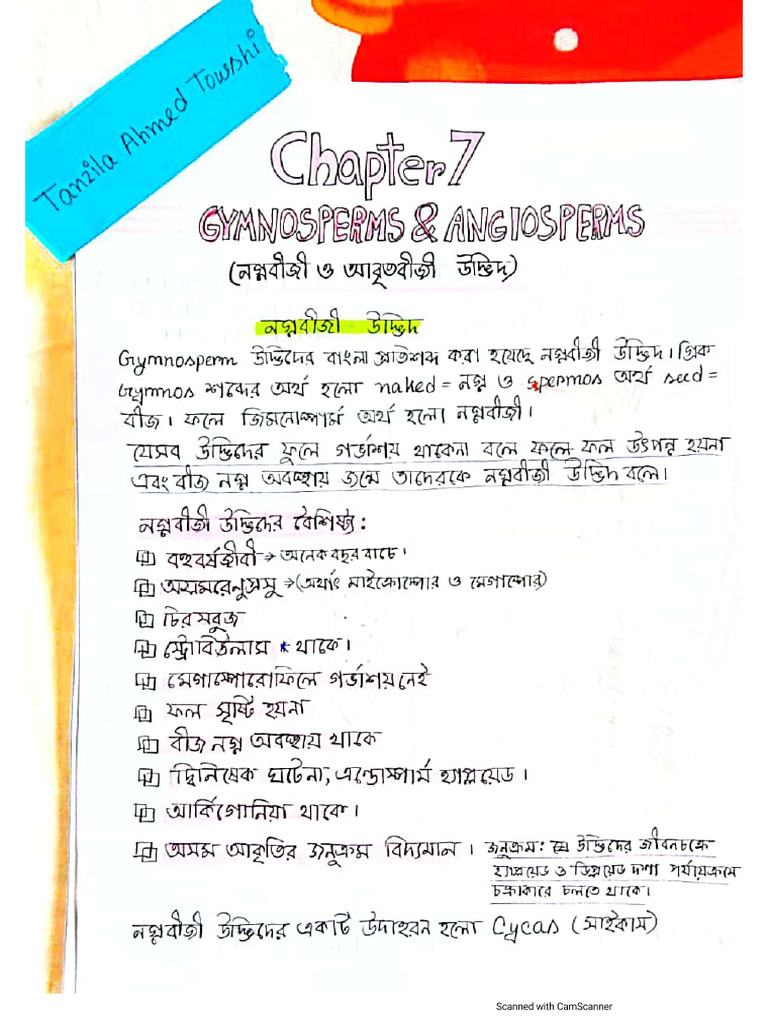 Tanzila Ahmed Towshi
Chapter 7
GYMNOSPERMS & ANGIOSPERMS
(নগ্নবীজী ও আবৃতবীজী উদ্ভিদ)
নগ্নবীজী উদ্ভিদ
Gymnosperm উদ্ভিদের বাংলা প্রতিশব্দ করা হয়েছে নগ্নবীজী উদ্ভিদ। গ্রিক
Gymnos শব্দের অর্থ হলো naked = নগ্ন ও spermos অর্থ seed =
বীজ। ফলে জিমনোস্পার্ম অর্থ হলো নগ্নবীজী।
যেসব উদ্ভিদের ফুলে গর্ভাশয় থাকেনা বলে ফলে ফল উৎপন্ন হয়না
এবং বীজ নগ্ন অবস্থায় জন্মে তাদেরকে নগ্নবীজী উদ্ভিদ বলে।
নগ্নবীজী উদ্ভিদের বৈশিষ্ট্য:
বহুবর্ষজীবী → অনেক বছর বাচে।
অসমরেনুপ্রসু → (অর্থাৎ মাইক্রোস্পোর ও মেগাস্পোর)
চিরসবুজ
স্ট্রোবিউলাস * থাকে।
মেগাস্পোরোফিলে গর্ভাশয় নেই
ফল সৃষ্টি হয়না
বীজ নগ্ন অবস্থায় থাকে
দ্বিনিষেক ঘটেনা, এন্ডোস্পার্ম হ্যাপ্লয়েড।
আর্কিগোনিয়া থাকে।
অসম আকৃতির জনুক্রম বিদ্যমান। জনুক্রম: যে উদ্ভিদের জীবনচক্রে
হ্যাপ্লয়েড ও ডিপ্লয়েড দশা পর্যায়ক্রমে
চক্রাকারে চলতে থাকে।
নগ্নবীজী উদ্ভিদের একটি উদাহরন হলো Cycas (সাইকাস)
Scanned with CamScanner